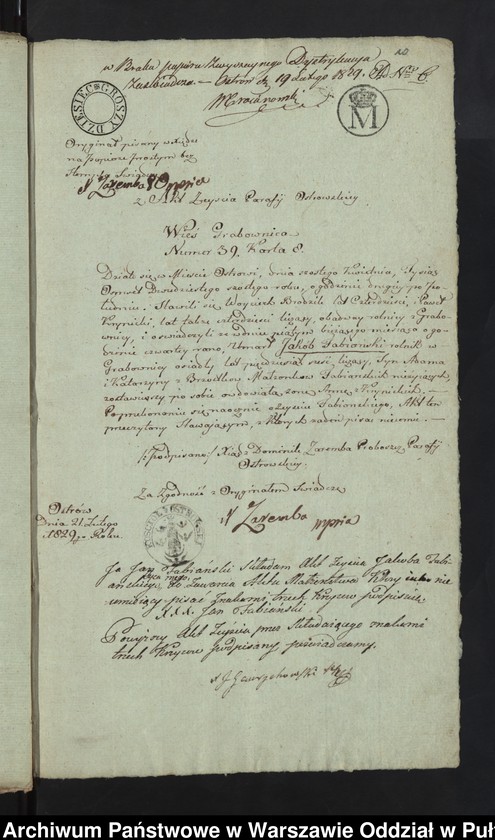 w Braku papieru zwyczaynego Dystrybucya
zaswiadcza. — Ostrów dn 19 Lutego 1829.
20
DZIESIĘC GROSZY
M
Oryginał pisany w Xiędze
na papierze prostym bez
stempla świadczę
X Zaremba mppia
z Akt Zeyscia Parafii Ostrowskiey
Wieś Grabownica
Numer 39. Karta 8.
Działo się w Mieście Ostrowi, dnia szostego Kwietnia, Tysiąc
Osmset Dwudziestego szostego roku, o godzinie drugiey po Po-
łudniu. Stawili się Woyciech Brodzik lat Czterdzieści, Paweł
Krynicki, lat także czterdzieści liczący, obadway rolnicy z Grabo-
wnicy, i oswiadczyli że w dniu piątym bieżącego miesiąca o go-
dzinie czwartey rano, Umarł Jakób Fabiański rolnik w
Grabownicy osiadły, lat pięćdziesiąt sześć liczący, Syn Adama
i Katarzyny z Małżonków Fabianskich nieżyjących
zostawiwszy po sobie owdowiałą żonę Annę
Po przekonaniu się naocznie o Zeyściu Fabianskiego, Akt ten
przeczytany Stawającym, z których żaden pisać nieumie. —
/: Podpisano :/ Xiądz Dominik Zaremba Proboszcz Parafii
Ostrowskiey.
Za Zgodność z Oryginałem Swiadczę
X Zaremba mppia
Ostrów
Dnia 21. Lutego
1829. Roku
Ja Jan Fabianski Składam Akt Zeyscia Jakuba Fabi-
anskiego do Zawarcia Aktu Małżeństwa który nie
umiejący pisać Znakami trzech Krzyżow podpisuję.
X.X.X. Jan Fabiański.
Powyższy Akt Zeyscia przez Składaiącego znakami
trzech Krzyżow podpisany poswiadczamy.
Archiwum Państwowe w Warszawie Oddział w Puł